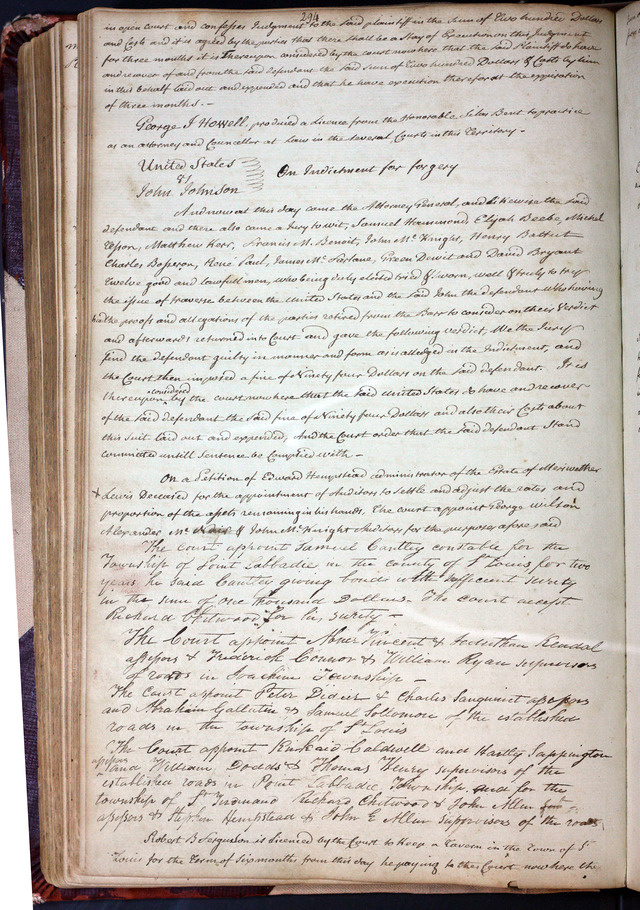 294
in open court and confesses Judgment to the said plaintiff in the Sum of Two hundred Dollars
and Costs and it is agreed by the parties that there shall be a Stay of Execution on this Judgment
for three months it is thereupon considered by the court now here that the said Plaintiff do have
and recover of and from the said defendant the said Sum of Two hundred Dollars & Costs by him
in this behalf laid out and expended and that he have execution therefor at the expiration
of three months. -
George J Howell, produced a licence from the Honorable Silas Bent to practice
as an attorney and Councellor at Law in the several Courts in this Territory -
United States
vs On Indictment for forgery
John Johnson
And now at this day came the Attorney General, and likewise the said
defendant and there also came a Jury to wit, Samuel Hammond Elijah Beebe, Michel
Tesson, Matthew Kerr, Francis M. Benoit, John McKnight, Henry Battut
Charles Bosseron, René Paul, James McFarlane, Green Dewit and David Bryant
twelve good and lawfull men, who being duly elected tried & sworn, well & truly to try
the issue of traverse between the United States and the said John the defendant who having
had the proofs and allegations of the parties retired from the Barr to consider on their Verdict
and afterwards returned into Court and gave the following verdict, We the Jury
find the defendant guilty in manner and form as is alledged in the Indictment, and
the Court then imposed a fine of Ninety four Dollars on the said defendant. It is
thereupon considered by the court now here that the said United States do have and recover
of the said defendant the said fine of Ninety four Dollars and also their Costs about
this suit laid out and expended, And the Court order that the said defendant Stand
committed untill sentence be complied with -
On a Petition of Edward Hempstead administrator of the Estate of Meriwether
+ Lewis Deceased for the appointment of Auditors to settle and adjust the rates and
proportion of the assets remaining in his hands. The court appoint George Wilson
Alexander & John McKnight Auditors for the purpose aforesaid
The court appoint Samuel Cantley constable for the
Township of Point Labbadie in the county of St Louis for two
years he said Cantley giving bonds with sufficient surety
in the sum of one thousand Dollars. The court accept
Richard Chitwood for his surety -
The Court appoint Abner Vincent & Jonathan Kendal
assessors & Frederick Connor & William Ryan supervisors
of roads in Joachim Township -
The Court appoint Peter Didier & Charles Sanguinet assessors
and Abraham Gallatin & Samuel Sollomon of the established
roads in the township of St Louis
The Court appoint Kinkaid Caldwell and Hartly Sappington
assessors and William Dodds & Thomas Henry supervisors of the
established roads in Point Labbadie Township and for the
township of St Ferdinand Richard Chitwood & John Allen
assessors & Stephen Hempstead & John E Allen supervisors of the roads
Robert B Ferguson is licenced by the Court to keep a Tavern in the town of St
Louis for the Term of six months from this day he paying to the Court now here the